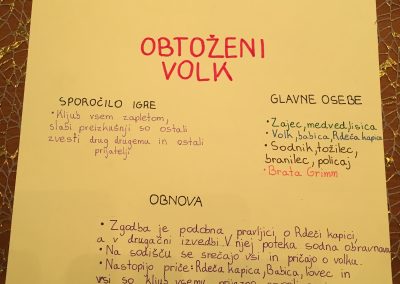 OBTOŽENI
VOLK
SPOROČILO IGRE
• Kljub vsem zapletom,
slabi preizkušnji so ostali
zvesti drug drugemu in ostali
prijatelji
GLAVNE OSEBE
• Zajec, medved, lisica
• Volk, babica, Rdeča kapica
• Sodnik, tožilec,
branilec, policaj
• Brata Grimm
OBNOVA
• Zgodba je podobna pravljici, o Rdeči kapici,
a v drugačni izvedbi. V njej poteka sodna obravnava
• Na sodišču se srečajo vsi in pričajo o volku.
• Nastopijo priče: Rdeča kapica, Babica, lovec in
vsi so kljub vsemu